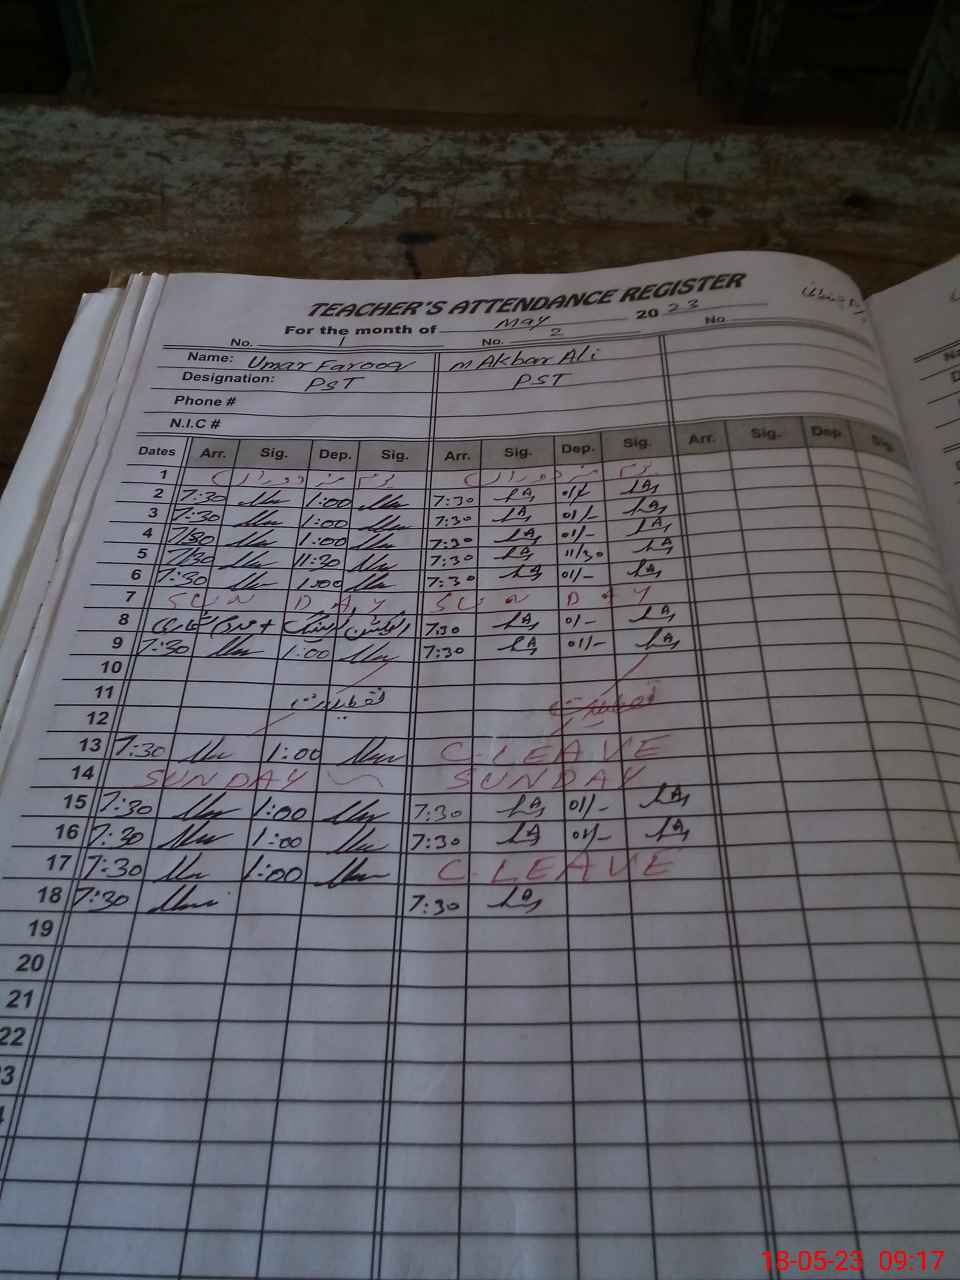 TEACHER'S ATTENDANCE REGISTER
For the month of May 2023
No. 1 No. 2 No
Name: Umar Farooq M Akbar Ali
Designation: PST PST
Phone #
N.I.C #
Dates Arr. Sig. Dep. Sig. Arr. Sig. Dep. Sig. Arr. Sig. Dep. Sig.
1 یوم مزدوراں یوم مزدوراں
2 7:30 1:00 7:30 01/-
3 7:30 1:00 7:30 01/-
4 7/30 1:00 7:30 01/-
5 7/30 11:30 7:30 11/30
6 7:30 1:00 7:30 01/-
7 SUNDAY SUNDAY
8 7:30 01/-
9 7:30 1:00 7:30 01/-
10
11 تعطیلات تعطیلات
12
13 7:30 1:00 C-LEAVE
14 SUNDAY SUNDAY
15 7:30 1:00 7:30 01/-
16 7:30 1:00 7:30 01/-
17 7:30 1:00 C-LEAVE
18 7:30 7:30
19
20
21
22
3
18-05-23 09:17